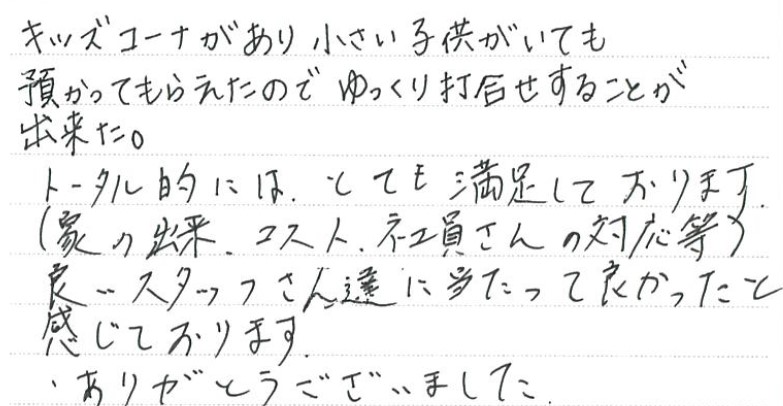 キッズコーナがあり小さい子供がいても
預かってもらえたのでゆっくり打合せすることが
出来た。
トータル的には、とても満足しております。
(家の出来、コスト、社員さんの対応等)
良いスタッフさん達に当たって良かったと
感じております。
・ありがとうございました。